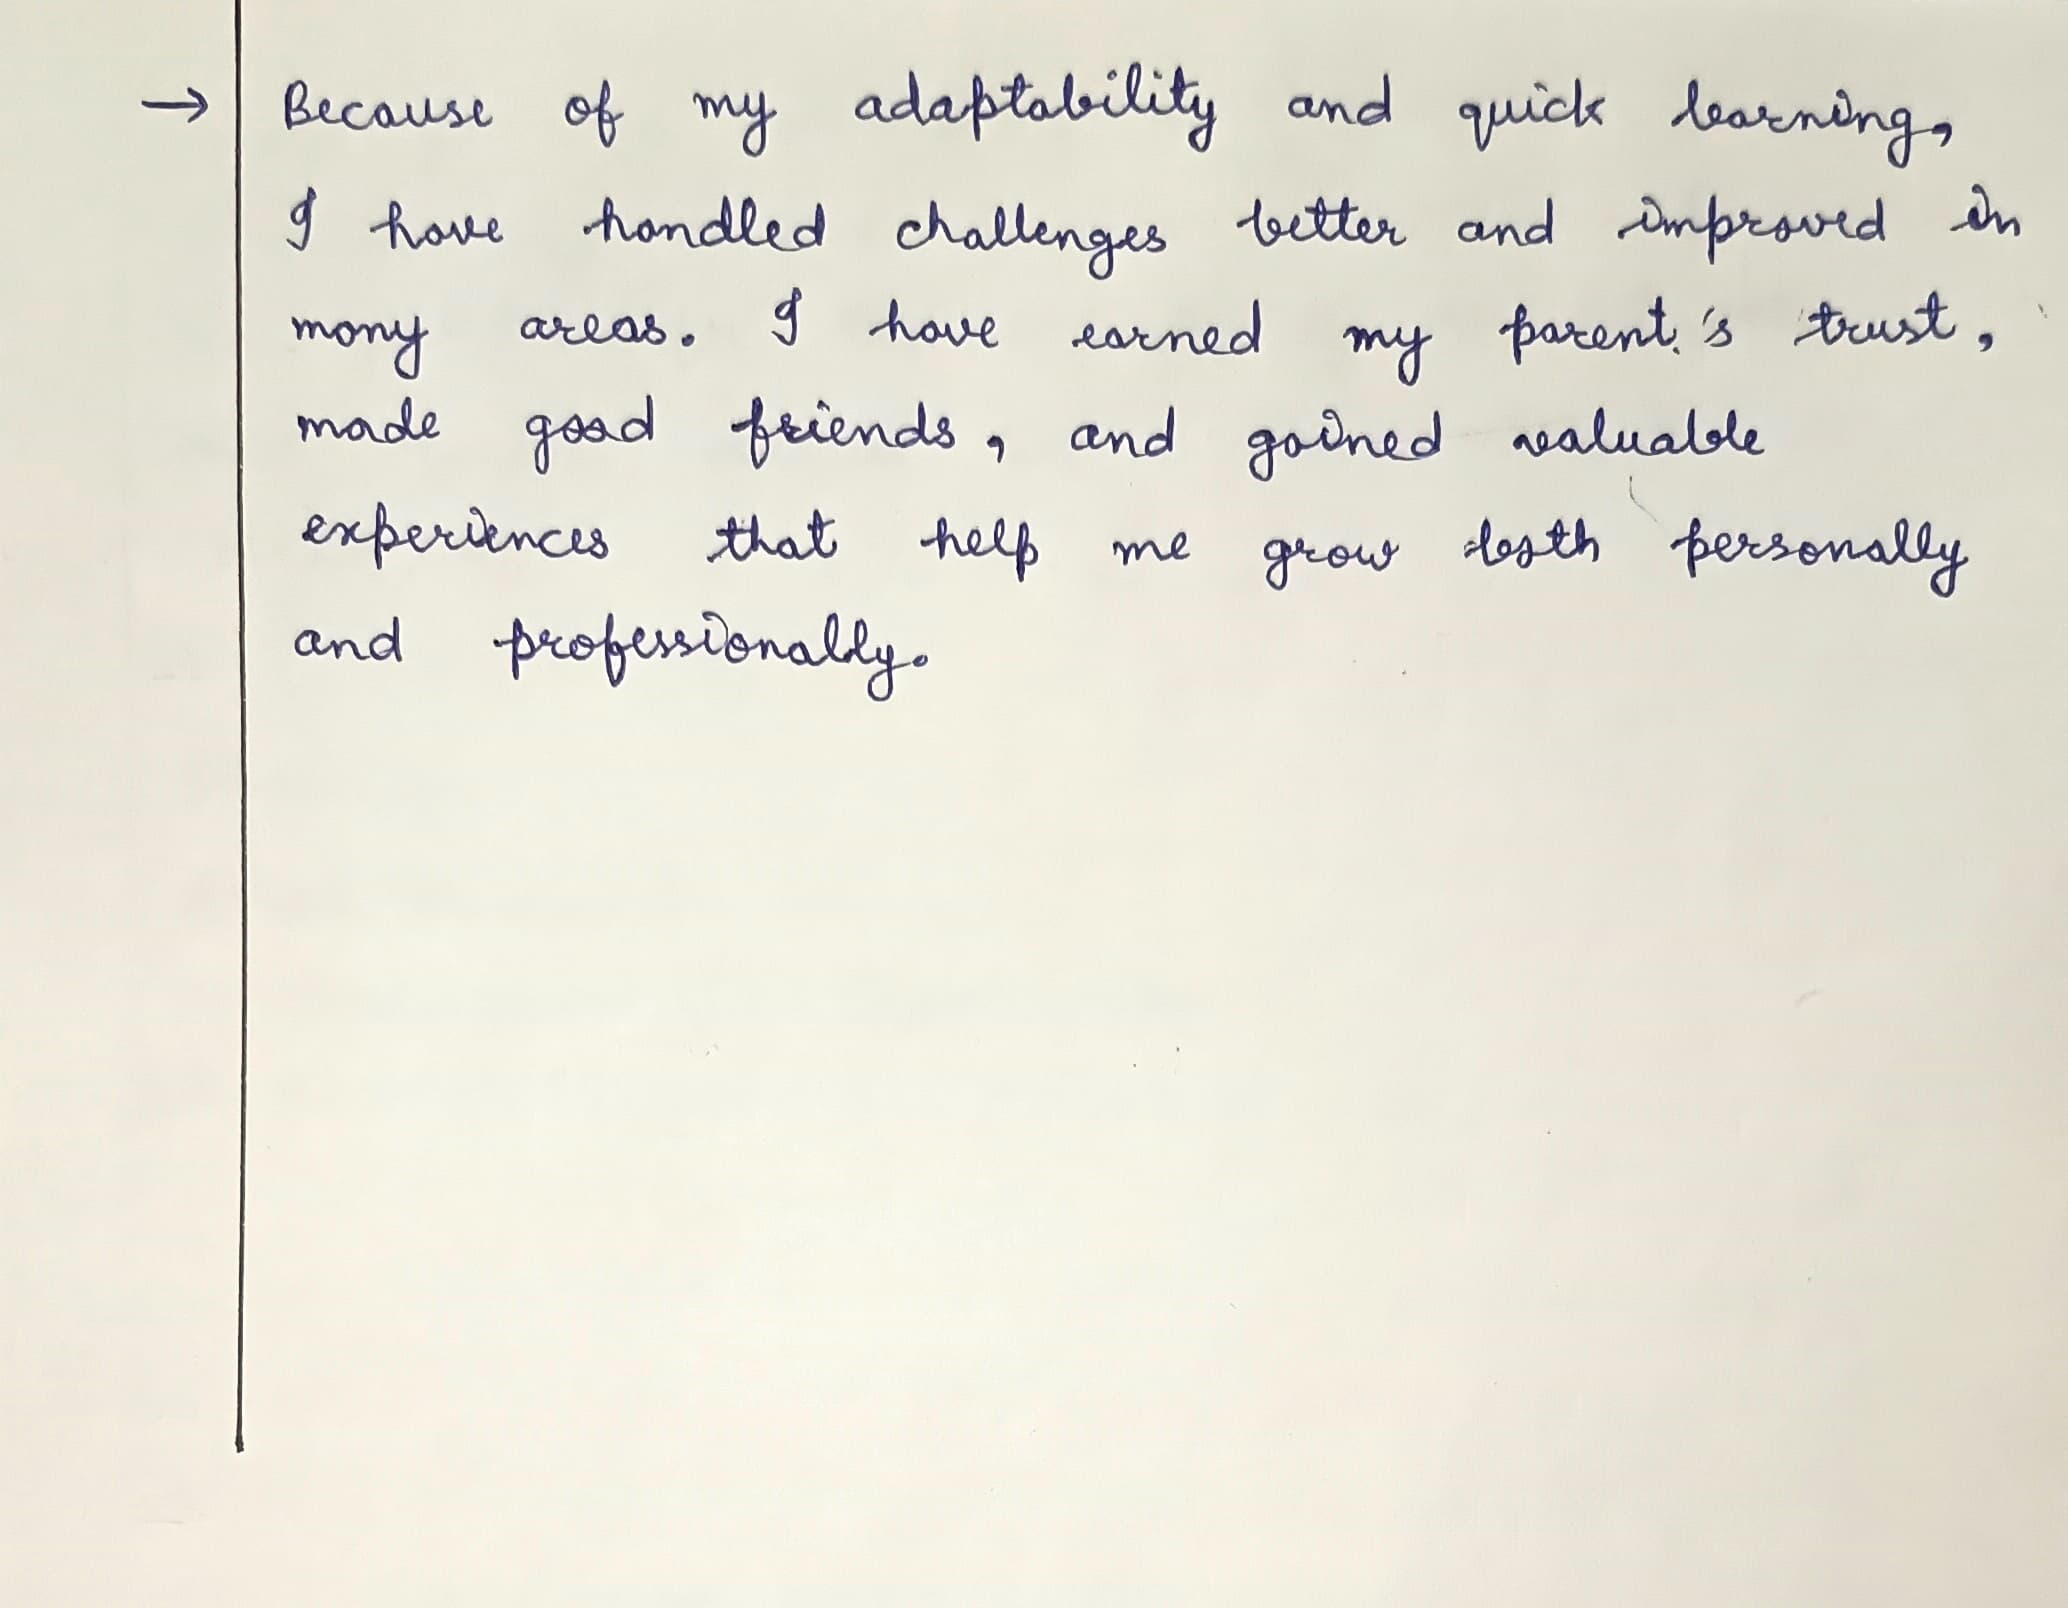 → Because of my adaptability and quick learning,
I have handled challenges better and improved in
many areas. I have earned my parent's trust,
made good friends, and gained valuable
experiences that help me grow both personally
and professionally.